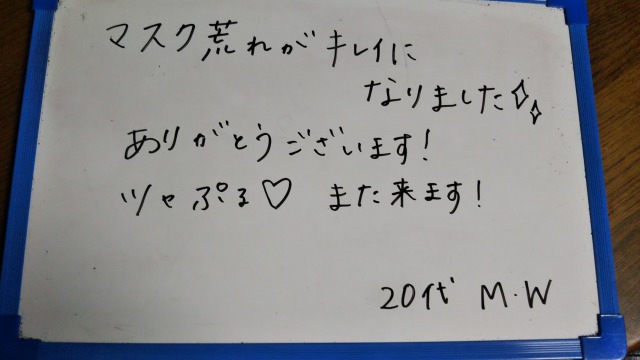 マスク荒れがキレイに
なりました✧✧
ありがとうございます!
ツヤぷる♡ また来ます!
20代 M.W